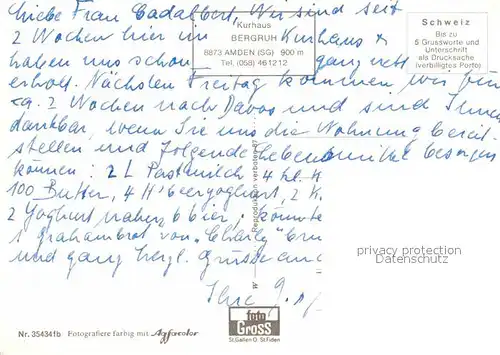 Liebe Frau Cadalbert, Wir sind seit
2 Wochen hier im Kurhaus &
haben uns schon ganz nett
erholt. Nächsten Freitag kommen wir für
ca. 2 Wochen nach Davos und sind Ihnen
dankbar, wenn Sie uns die Wohnung bereit-
stellen und folgende Lebensmittel besorgen
können: 2 L Pastmilch 4 kl.
100 Butter, 4 H'beeryoghurt, 2 K
2 Yoghurt nature, 6 Eier,
1 Grahambrot von "Charly"
und ganz herzl. Grüsse
Ihre
Kurhaus
BERGRUH
8873 AMDEN (SG) 900 m
Tel. (058) 46 12 12
Schweiz
Bis zu
5 Grussworte und
Unterschrift
als Drucksache
(verbilligtes Porto)
Reproduktion verboten
privacy protection
Datenschutz
foto
GROSS
St. Gallen O. St Fiden
Nr. 35434fb Fotografiere farbig mit Agfacolor